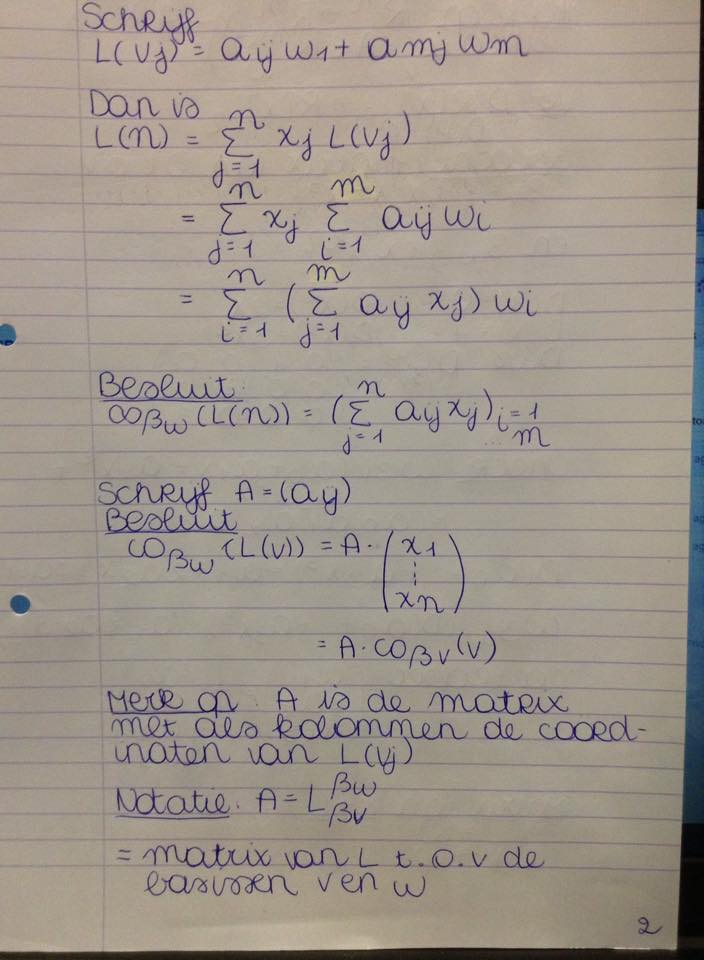 Schrijf
L(vj) = aij w1 + amj wm
Dan is
L(n) = n∑j=1 xj L(vj)
= n∑j=1 xj m∑i=1 aij wi
= n∑i=1 (m∑j=1 aij xj) wi
Besluit.
coβw(L(n)) = (n∑j=1 aij xj) i=1...m
Schrijf A = (aij)
Besluit
coβw(L(v)) = A · (x1 ⋮ xn)
= A · coβv(v)
Merk op. A is de matrix
met als kolommen de coord-
inaten van L(vj)
Notatie. A = L βw βv
= matrix van L t.o.v de
basissen v en w
2